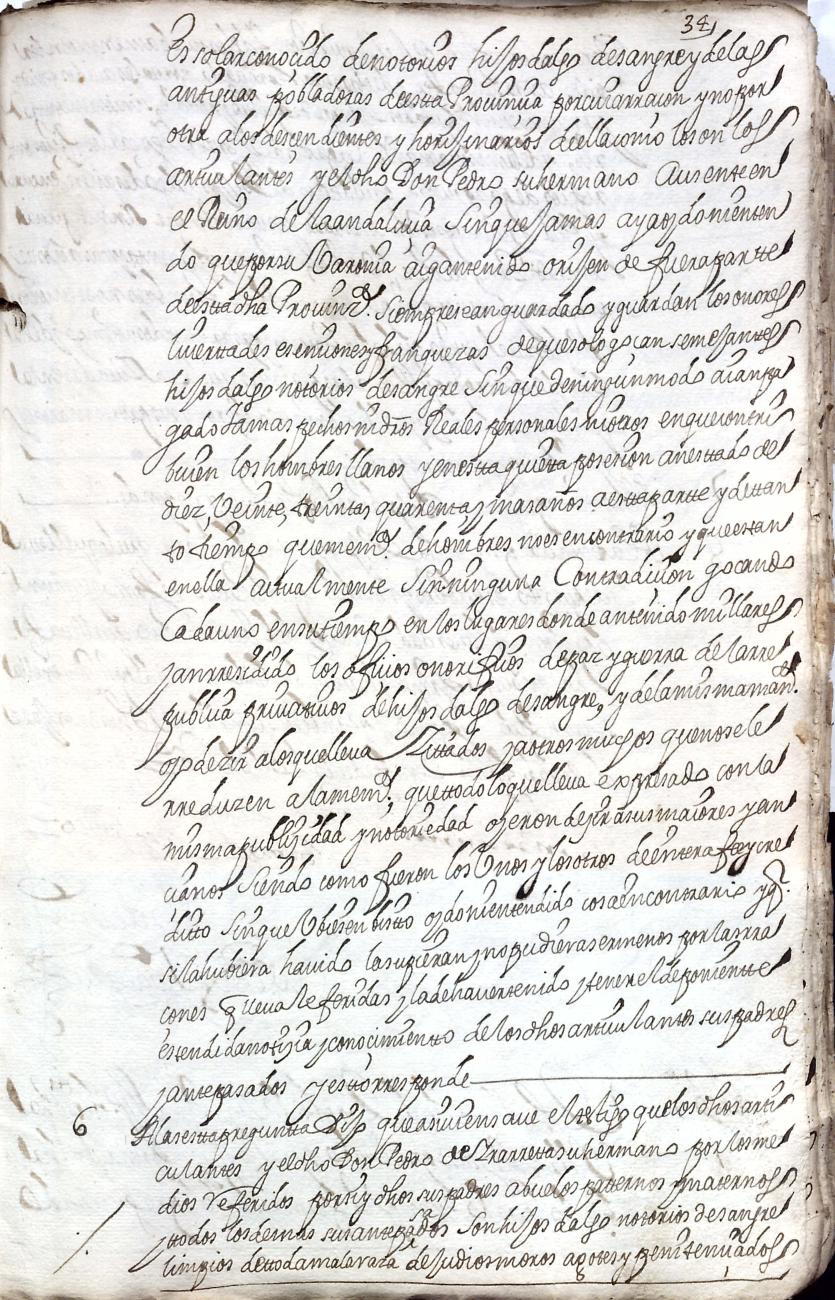 34
Es solar conocido de notorios hijosdalgo de sangre y de las
antiguas pobladoras de estta Provincia por cuia rracon y no por
otra a los descendientes y horijinarios de ella como lo son los
articulantes y el dho Don Pedro su hermano Ausente en
el Reino de la andalucia sin que Jamas aya oydo ni enten
do que por su Varonia aigan tenido orijen de fuera partte
de estta dha Provinª. Siempre se an guardado y guardan los onores
livertades esenciones y franquezas de que solo gocan semejantes
hijosdalgo notorios de sangre sin que de ningun modo aian pa
gado Jamas pechos ni dros Reales personales ni otros en que contri
buien los hombres llanos y en estta quieta posesion an esttado de
diez, Veinte, treinta quarenta y mas años a estta partte y de ttan
to tiempo que memª. de hombres no es en contrario y que esttan
en ella actualmente sin ninguna Contradicion gocando
Cada uno en su tiempo en los lugares donde an tenido millares
y an rresidido los oficios onorificos de paz y guerra de la rre
publica privativos de hijosdalgo de sangre, y de la misma maner.
oyo dezir a los que lleva Zittados y a otros muchos que no se le
rreduzen a la memª. que ttodo lo que lleva expresado con la
misma publizidad y notoriedad oyeron dezir a sus maiores y an
cianos siendo como fueron los Unos y los otros de entera fee y cre
ditto sin que Ubiesen bistto oydo ni entendido cosa en contrario y q.
si la hubiera havido la supieran y no pudiera ser menos por las rra
cones q lleva Referidas y la de haver tenido y tener el deponientte
estendida notizia y conocimientto de los dhos articulantes sus padres
y antepasados y estto rresponde
6 A la sestta pregunta Dijo que asi vien save el testtigo que los dhos arti
culantes y el dho Don Pedro de Zrarretta su hermano por los me
dios Referidos por si y dhos sus padres abuelos patternos y matternos
y ttodos los demas sus antepasados son hijosdalgo notorios de sangre
limpios de ttoda mala raza de judios moros agotes y penitenciados